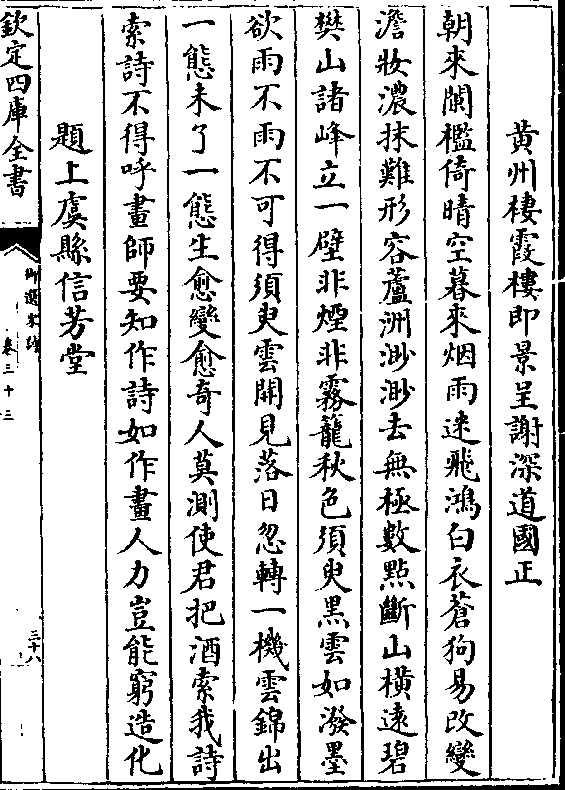 黄州棲霞樓即景呈謝深道國正
朝來闌檻倚晴空暮來烟雨迷飛鴻白衣蒼狗易改變
澹妝濃抹難形容蘆洲渺渺去無極數點斷山橫遠碧
樊山諸峰立一壁非煙非霧籠秋色須臾黑雲如潑墨
欲雨不雨不可得須臾雲開見落日忽轉一機雲錦出
一態未了一態生愈變愈奇人莫測使君把酒索我詩
索詩不得呼畫師要知作詩如作畫人力豈能窮造化
題上虞縣信芳堂
欽定四庫全書
御選宋詩
卷三十三
三十八